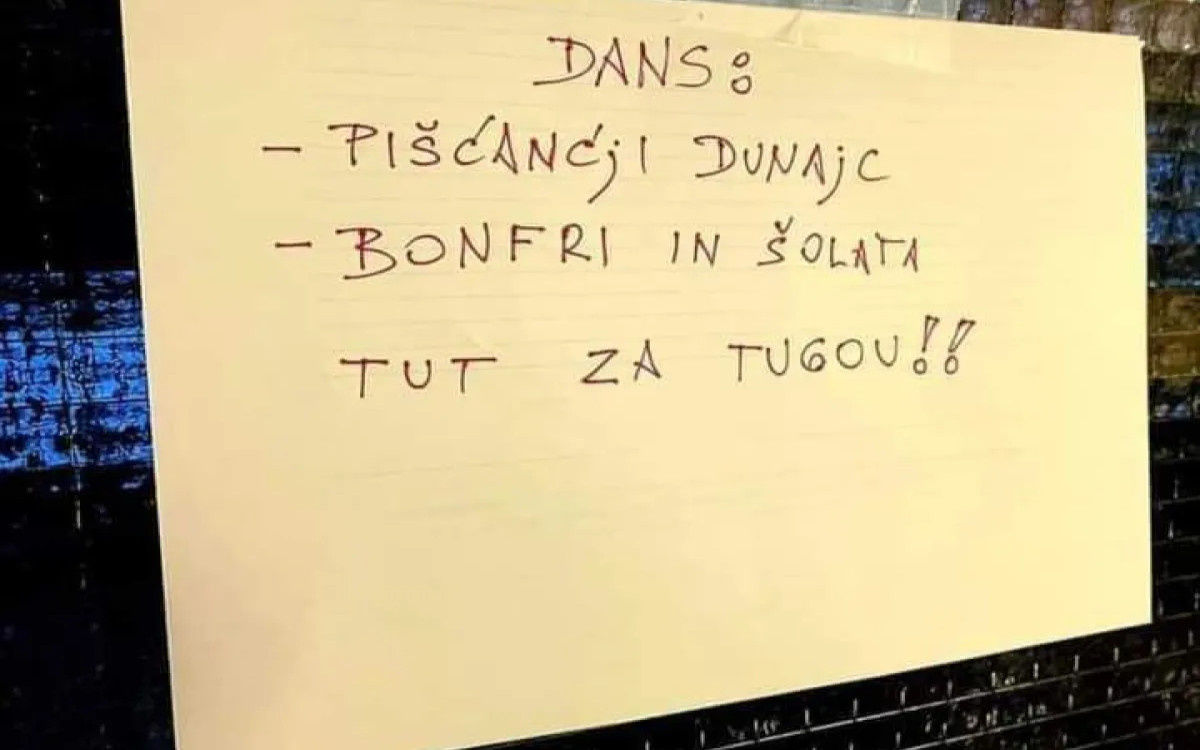 DANS:
- PIŠĆANĆjI DUNAjC
- BONFRI IN ŠOLATA
TUT ZA TUGOU!!